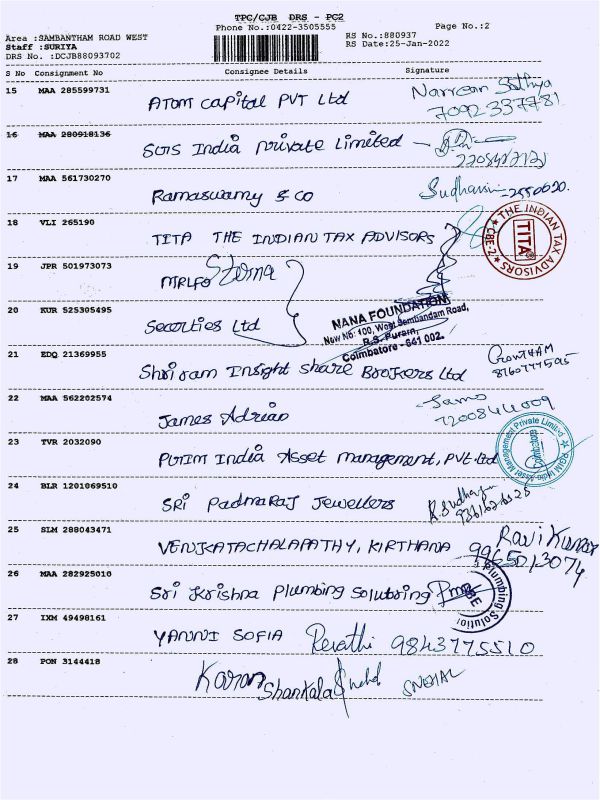 TPC/CJB DRS - PC2
Phone No.:0422-3505555
Page No.:2
Area :SAMBANTHAM ROAD WEST
RS No.:880937
Staff :SURIYA
RS Date:25-Jan-2022
DRS No. :DCJB88093702
S No Consignment No Consignee Details Signature
15 MAA 285599731 ATOM Capital PVT Ltd
7092337781
16 MAA 280918136 SUS India Private Limited
17 MAA 561730270 Ramaswamy & CO
18 VLI 265190 TITA THE INDIAN TAX ADVISORS
THE INDIAN TAX ADVISORS ★ CBE-2 ★
TITA
19 JPR 501973073
20 KUR 525305495 Securities Ltd
NANA FOUNDATION
New No: 100, West Sambandam Road,
R.S. Puram,
Coimbatore - 641 002.
21 EDQ 21369955 Shriram Insight Share Brokers Ltd
22 MAA 562202574 James Adrian
7200844009
23 TVR 2032090 India Asset Management, PVT Ltd
PGIM India Asset Management Private Limited
Coimbatore
24 BLR 1201069510 SRI Padmaraj Jewellers
25 SLM 288043471 VENKATACHALAPATHY, KIRTHANA Ravi Kumar
9965013074
26 MAA 282925010 Sri Krishna Plumbing
Plumbing Solution
27 IXM 49498161 YANNI SOFIA Revathi 9843775510
28 PON 3144418 Karan
Shankala SNEHAL